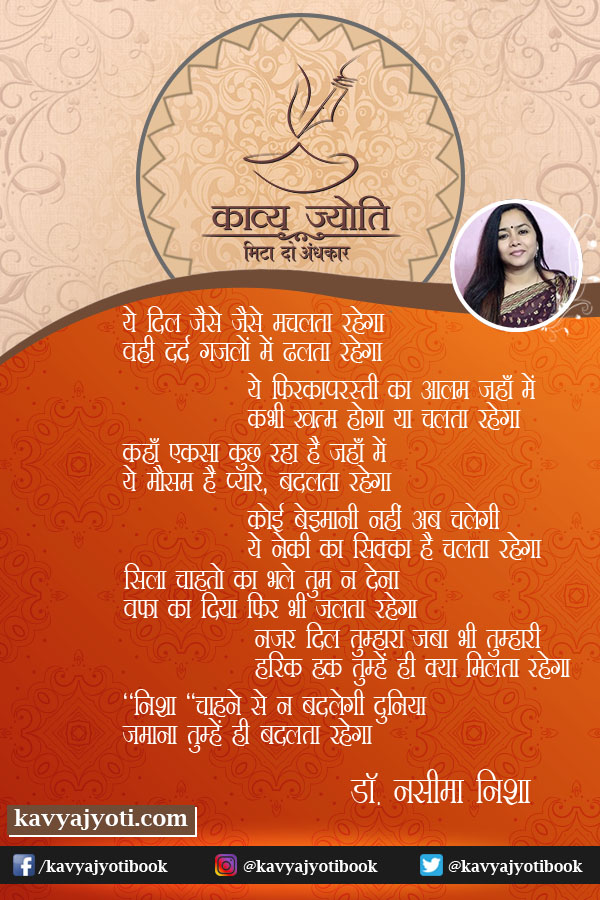 काव्य ज्योति
मिटा दो अंधकार
ये दिल जैसे जैसे मचलता रहेगा
वही दर्द गजलों में ढलता रहेगा
ये फिरकापरस्ती का आलम जहाँ में
कभी खत्म होगा या चलता रहेगा
कहाँ एकसा कुछ रहा है जहाँ में
ये मौसम है प्यारे, बदलता रहेगा
कोई बेइमानी नहीं अब चलेगी
ये नेकी का सिक्का है चलता रहेगा
सिला चाहतो का भले तुम न देना
वफा का दिया फिर भी जलता रहेगा
नजर दिल तुम्हारा जबा भी तुम्हारी
हरिक हक तुम्हें ही क्या मिलता रहेगा
“निशा “चाहने से न बदलेगी दुनिया
जमाना तुम्हें ही बदलता रहेगा
डॉ. नसीमा निशा
kavyajyoti.com
/kavyajyotibook @kavyajyotibook @kavyajyotibook